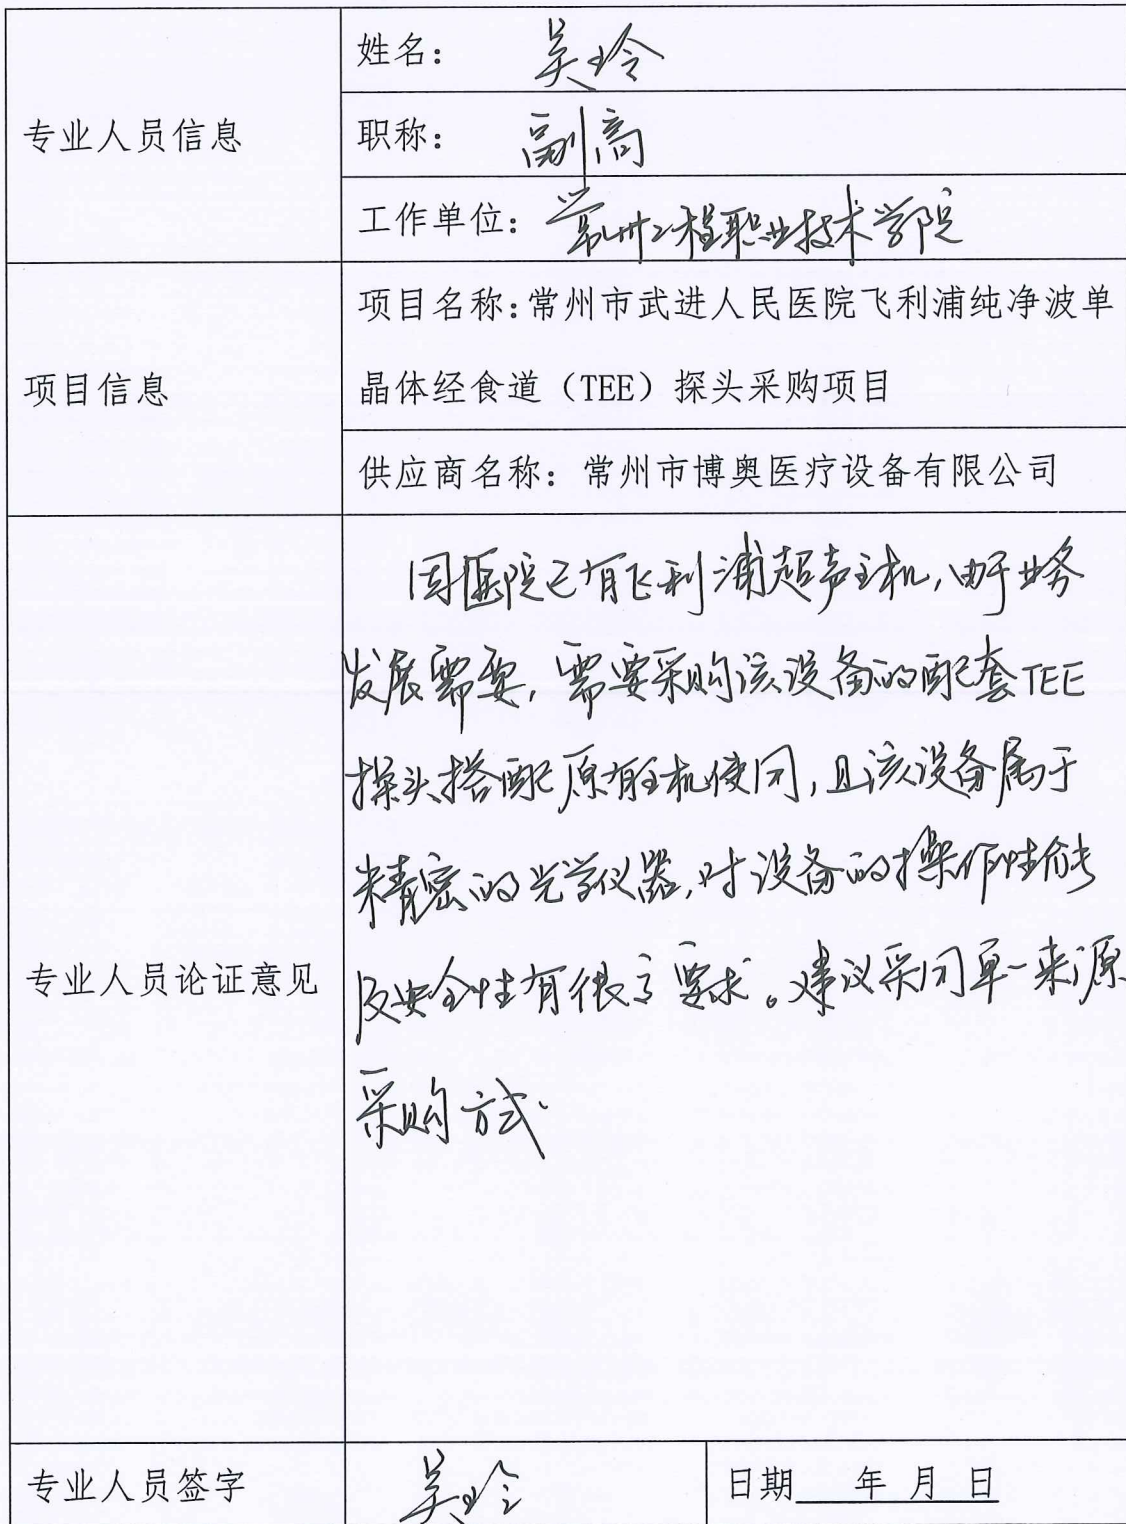 专业人员信息
姓名： 吴玲
职称： 副高
工作单位： 常州工程职业技术学院
项目信息
项目名称：常州市武进人民医院飞利浦纯净波单
晶体经食道（TEE）探头采购项目
供应商名称：常州市博奥医疗设备有限公司
专业人员论证意见
因医院已有飞利浦超声主机，由于业务
发展需要，需要采购该设备的配套TEE
探头搭配原有主机使用，且该设备属于
精密的光学仪器，对设备的操作性能
及安全性有很高要求。建议采用单一来源
采购方式.
专业人员签字
吴玲
日期 年 月 日